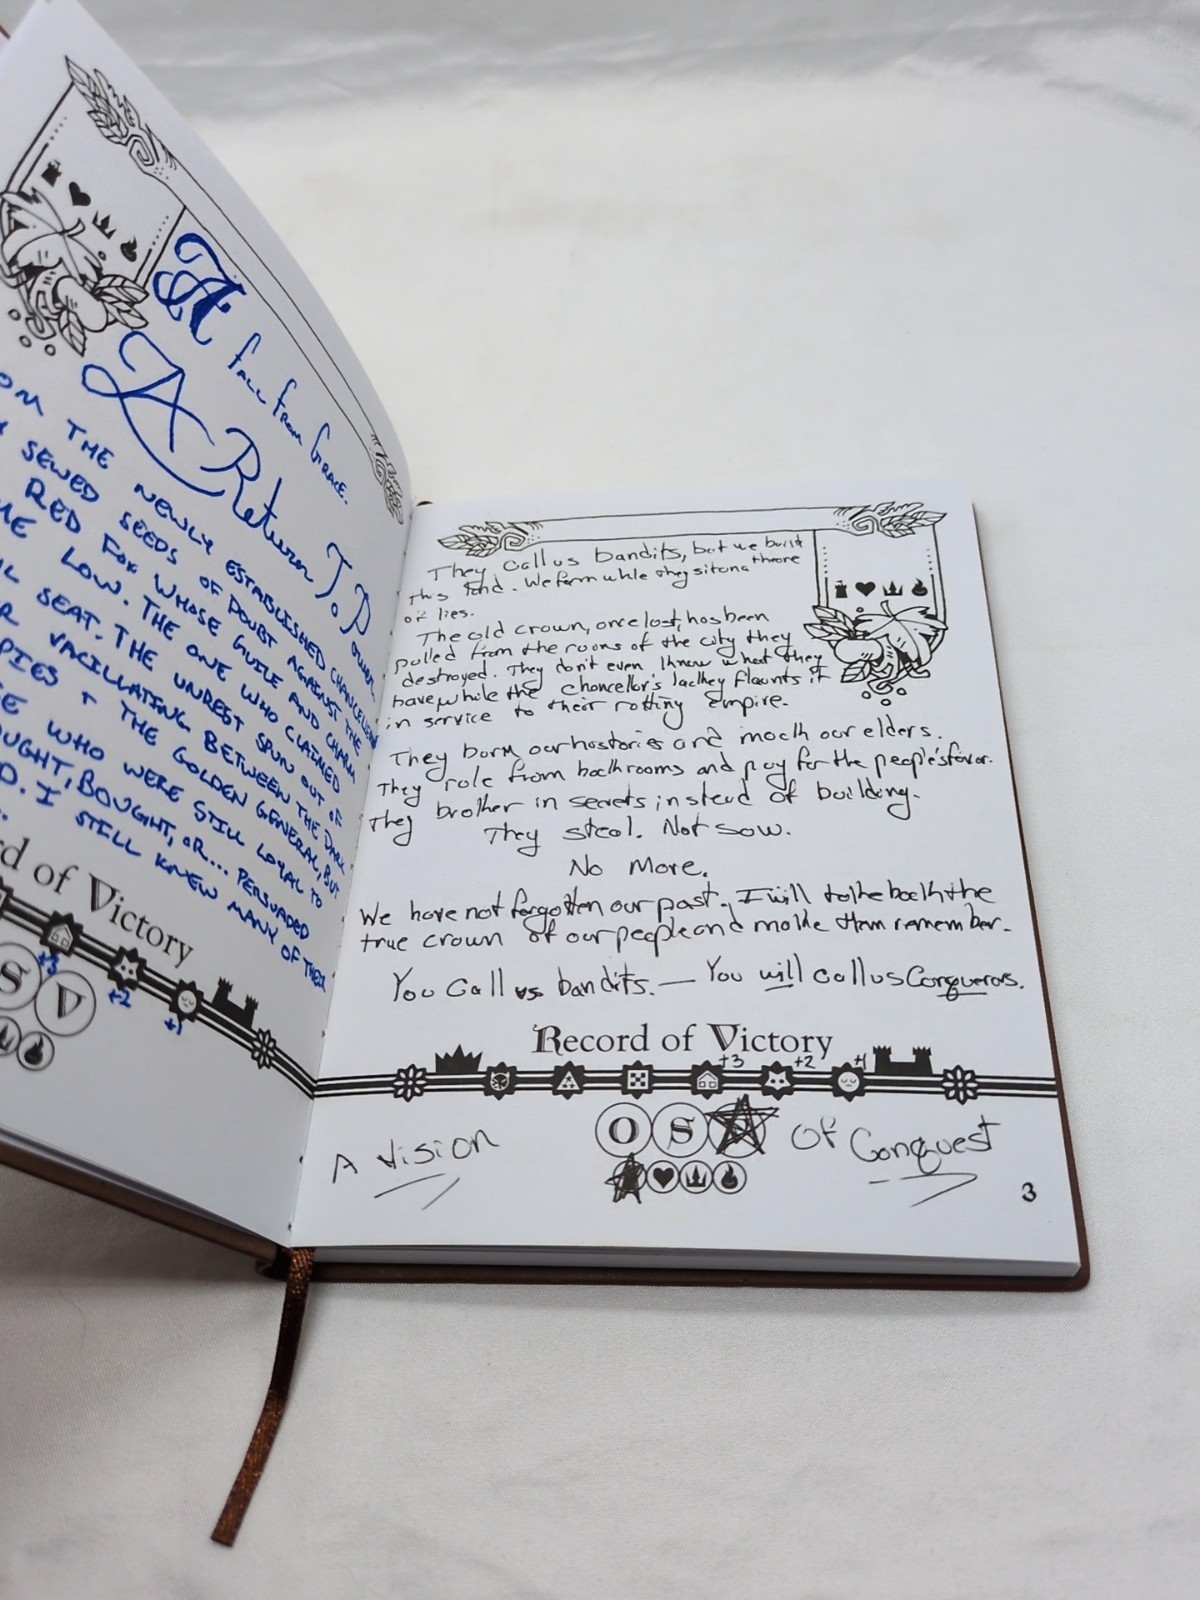 A Fall From Grace.
A Return T.D
THE NEWLY ESTABLISHED
SEWED SEEDS OF DOUBT AGAINST THE
RED FOX WHOSE GUILE AND CHARM
LOW. THE ONE WHO CLAIMED
SEAT. THE UNREST SPUN OUT OF
VACILLATING BETWEEN THE DARK
+ THE GOLDEN GENERAL, BUT
WHO WERE STILL LOYAL TO
BOUGHT, OR... PERSUADED
. I STILL KNEW MANY OF THEM
rd of Victory
+3 +2 +1
S V
They Call us bandits, but we build
this land. We farm while they sit on a throne
of lies.
The old crown, once lost, has been
pulled from the ruins of the city they
destroyed. They don't even know what they
have, while the chancellor's lackey flaunts it
in service to their rotting empire.
They burn our histories and mock our elders.
They rule from backrooms and pay for the people's favor.
They brother in secrets instead of building.
They steal. Not sow.
No More.
We have not forgotten our past. I will take back the
true crown of our people and make them remember.
You Call us bandits. — You will call us Conquerors.
Record of Victory
+3 +2 +1
O S
A Vision Of Conquest
3